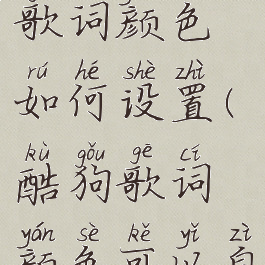 歌词颜色
rú hé shè zhì
如何设置(
kù gǒu gē cí
酷狗歌词
yán sè kě yǐ zì
颜色可以自